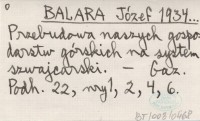 BALARA Józef 1934...
Przebudowa naszych gospo
darstw górskich na system
szwajcarski. — Gaz.
Podh. 22, nry 1, 2, 4, 6.